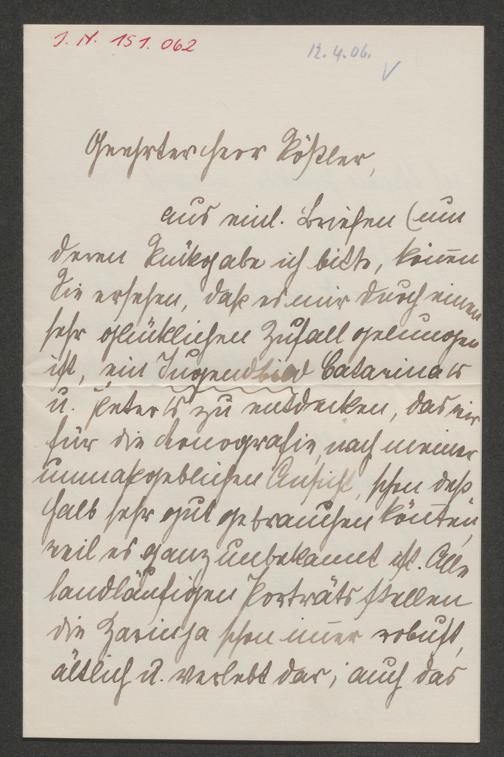 J. N. 151.062
12.4.06.
Geehrter Herr Rößler,
aus einl. Briefen (um
deren Rückgabe ich bitte, können
Sie ersehen, daß es mir durch einen
sehr glücklichen Zufall gelungen
ist, ein Jugendbild Catarina's
u. Peter's zu entdecken, das wir
für die Ikonografie, nach meiner
unmaßgeblichen Ansicht, schon deß
halb sehr gut gebrauchen könten,
weil es ganz unbekannt ist. Alle
landläufigen Porträts stellen
die Zarin ja schon imer robust,
ältlich u. verlebt dar; auch das